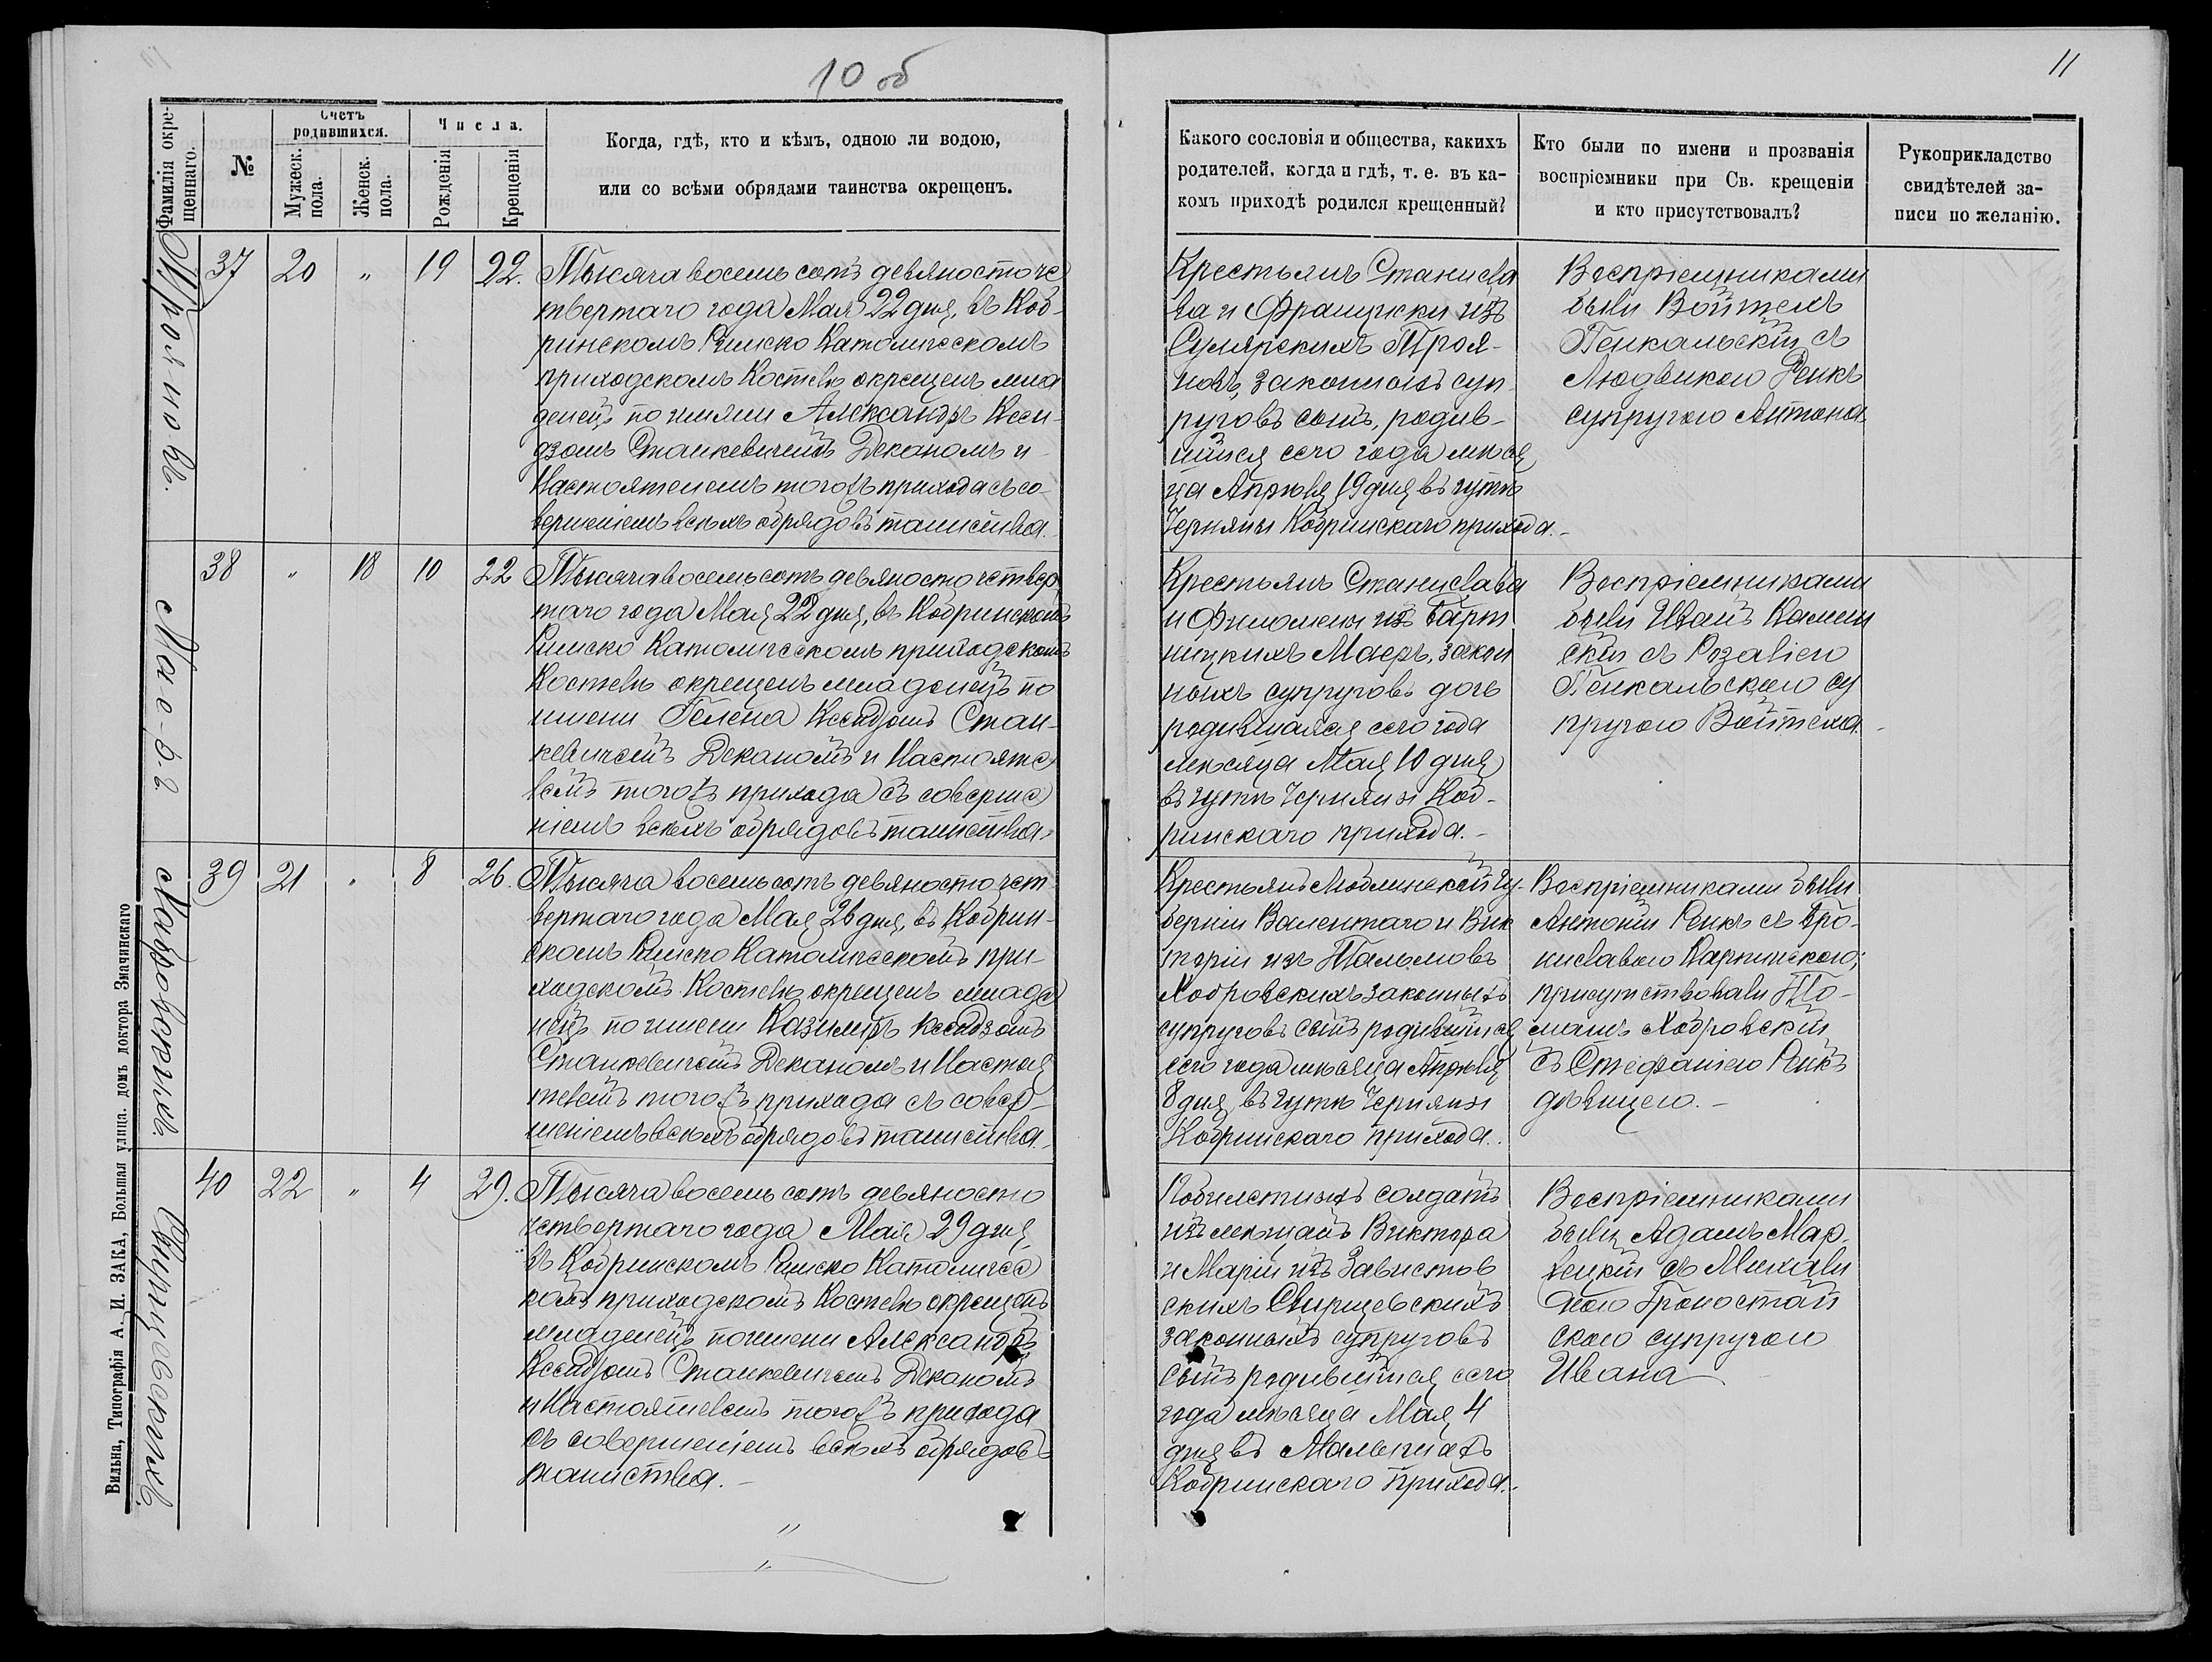 10 об
11
Фамилія окре-
щеннаго.
№
Счетъ
родившихся.
Мужеск.
пола.
Женск.
пола.
Числа.
Рожденія
Крещенія
Когда, гдѣ, кто и кѣмъ, одною ли водою,
или со всѣми обрядами таинства окрещенъ.
Какого сословія и общества, какихъ
родителей, когда и гдѣ, т. е. въ ка-
комъ приходѣ родился крещенный?
Кто были по имени и прозванія
воспріемники при Св. крещеніи
и кто присутствовалъ?
Рукоприкладство
свидѣтелей за-
писи по желанію.
Трояновъ.
37 20 " 19 22.
Тысяча восемь сотъ девяносто че
твертаго года Мая 22 дня, въ Коб-
ринскомъ Римско Католическомъ
приходскомъ Костелѣ окрещенъ мла
денецъ по имени Александръ Ксен-
дзомъ Станкевичемъ Деканомъ и
Настоятелемъ тогожъ прихода съ со-
вершеніемъ всѣхъ обрядовъ таинства.
Крестьянъ Станисла
ва и Францишки изъ
Сулярскихъ Троя-
новъ, законныхъ суп-
руговъ сынъ, родив-
шійся сего года мѣся
ца Апрѣля 19 дня въ гутѣ
Черняны Кобринскаго прихода.-
Воспріемниками
были Войтехъ
Пенкальскій съ
Людвикою Ренкъ
супругою Антона.
Маеръ.
38 " 18 10 22
Тысяча восемь сотъ девяносто четвер
таго года Мая 22 дня, въ Кобринскомъ
Римско Католическомъ приходскомъ
Костелѣ окрещенъ младенецъ по
имени Гелена Ксендзомъ Стан-
кевичемъ Деканомъ и Настояте
лемъ тогожъ прихода съ соверше
ніемъ всѣхъ обрядовъ таинства.
Крестьянъ Станислава
и Филомены изъ Барт
ницкихъ Маеръ, закон
ныхъ супруговъ дочь
родившаяся сего года
мѣсяца Мая 10 дня
въ гутѣ Черняны Коб-
ринскаго прихода.-
Воспріемниками
были Иванъ Камин
скій съ Розаліею
Пенкальскою су
пругою Войтеха.
Хобровскихъ.
39 21 " 8 26.
Тысяча восемь сотъ девяносто чет
вертаго года Мая 26 дня, въ Кобрин-
скомъ Римско Католическомъ при-
ходскомъ Костелѣ окрещенъ младе
нецъ по имени Казимиръ Ксендзомъ
Станкевичемъ Деканомъ и Настоя
телемъ тогожъ прихода съ совер-
шеніемъ всѣхъ обрядовъ таинства.
Крестьянъ Люблинской гу-
берніи Валентаго и Вик
торіи изъ
Хобровскихъ законныхъ
супруговъ сынъ родившійся
сего года мѣсяца Апрѣля
8 дня въ гутѣ Черняны
Кобринскаго прихода.
Воспріемниками были
Антоній Ренкъ съ Бро-
ниславою Карпинскою;
присутствовали То-
машъ Хобровскій
съ Стефаніею Ренкъ
дѣвицею.-
Свирщевскихъ.
40 22 " 4 29.
Тысяча восемь сотъ девяносто
четвертаго года Мая 29 дня
въ Кобринскомъ Римско Католичес
комъ приходскомъ Костелѣ окрещенъ
младенецъ по имени Александръ
Ксендзомъ Станкевичемъ Деканомъ
и Настоятелемъ тогожъ прихода
съ совершеніемъ всѣхъ обрядовъ
таинства.-
солдатъ
изъ мѣщанъ Виктора
и Маріи изъ Завистов
скихъ Свирщевскихъ
законныхъ супруговъ
сынъ родившійся сего
года мѣсяца Мая 4
дня въ
Кобринскаго прихода.-
Воспріемниками
были Адамъ Мар-
съ Михали
ною Гроностай
скою супругою
Ивана
Вильна, Типографія А. И. ЗАКА, Большая улица. домъ доктора Змачинскаго